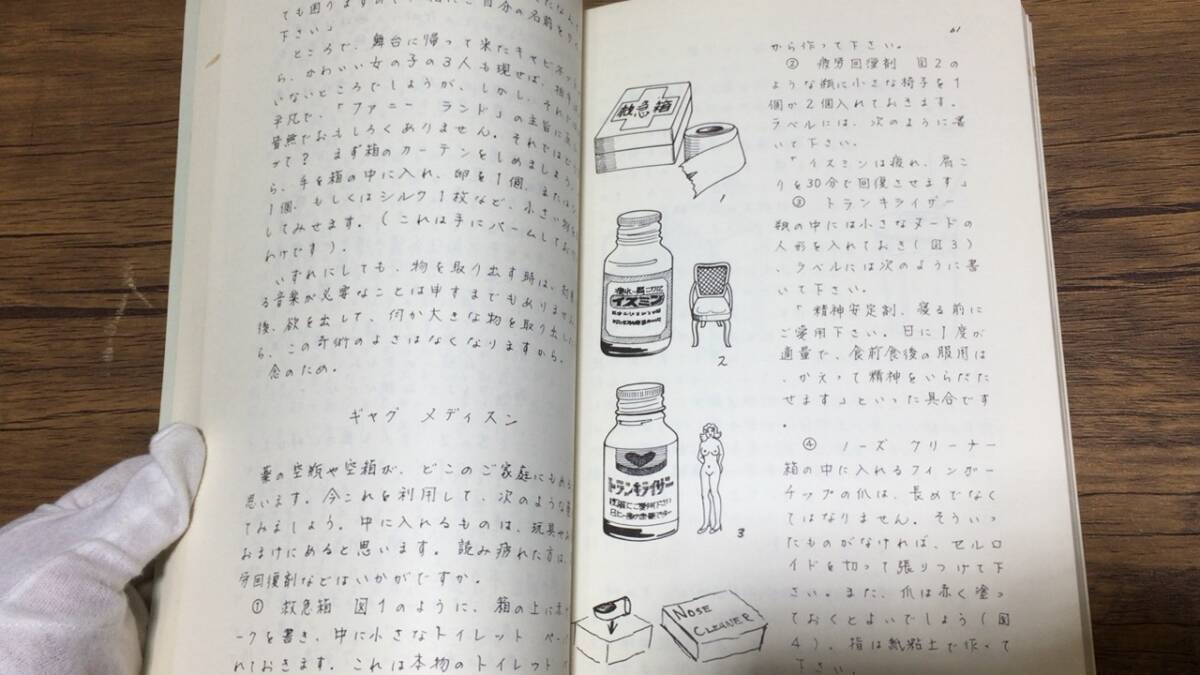 下さい」
ところで、舞台に帰って来たキャビネット
ら、かわいい女の子の3人も現せば、
いないところでしょうが、しかし、それでは
平凡で、「ファニー ランド」の主旨に
皆無でおもしろくありません。それでは
って？ まず箱のカーテンをしめましょう。
ら、手を箱の中に入れ、卵を1個、または
1個、もしくはシルク1枚など、小さい物を
してみせます。(これは手にパームしておい
わけです)。
いずれにしても、物を取り出す時は、
る音楽が必要なことは申すまでもありません
後、欲を出して、何か大きな物を取り出した
ら、この奇術のよさはなくなりますから、
念のため。
ギャグ メディスン
薬の空瓶や空箱が、どこのご家庭にもある
思います。今これを利用して、次のような
てみましょう。中に入れるものは、玩具や
おまけにあると思います。読み疲れた方は、
労回復剤などはいかがですか。
① 救急箱 図1のように、箱の上に
ークを書き、中に小さなトイレット ペー
れておきます。これは本物のトイレット
61
から作って下さい。
② 疲労回復剤 図2の
ような瓶に小さな椅子を1
個か2個入れておきます。
ラベルには、次のように書
いて下さい。
「イスミンは疲れ、肩こ
りを30分で回復させます」
③ トランキライザー
瓶の中には小さなヌードの
人形を入れておき(図3)
、ラベルには次のように書
いて下さい。
「精神安定剤、寝る前に
ご愛用下さい。日に1度が
適量で、食前食後の服用は
、かえって精神をいらだた
せます」といった具合です
。
④ ノーズ クリーナー
箱の中に入れるフィンガー
チップの爪は、長めでなく
てはなりません。そういっ
たものがなければ、セルロ
イドを切って張りつけて下
さい。また、爪は赤く塗っ
ておくとよいでしょう(図
4)。指は紙粘土で作って
下さい。
救急箱
1
イスミン
2
トランキライザー
3
NOSE
CLEANER